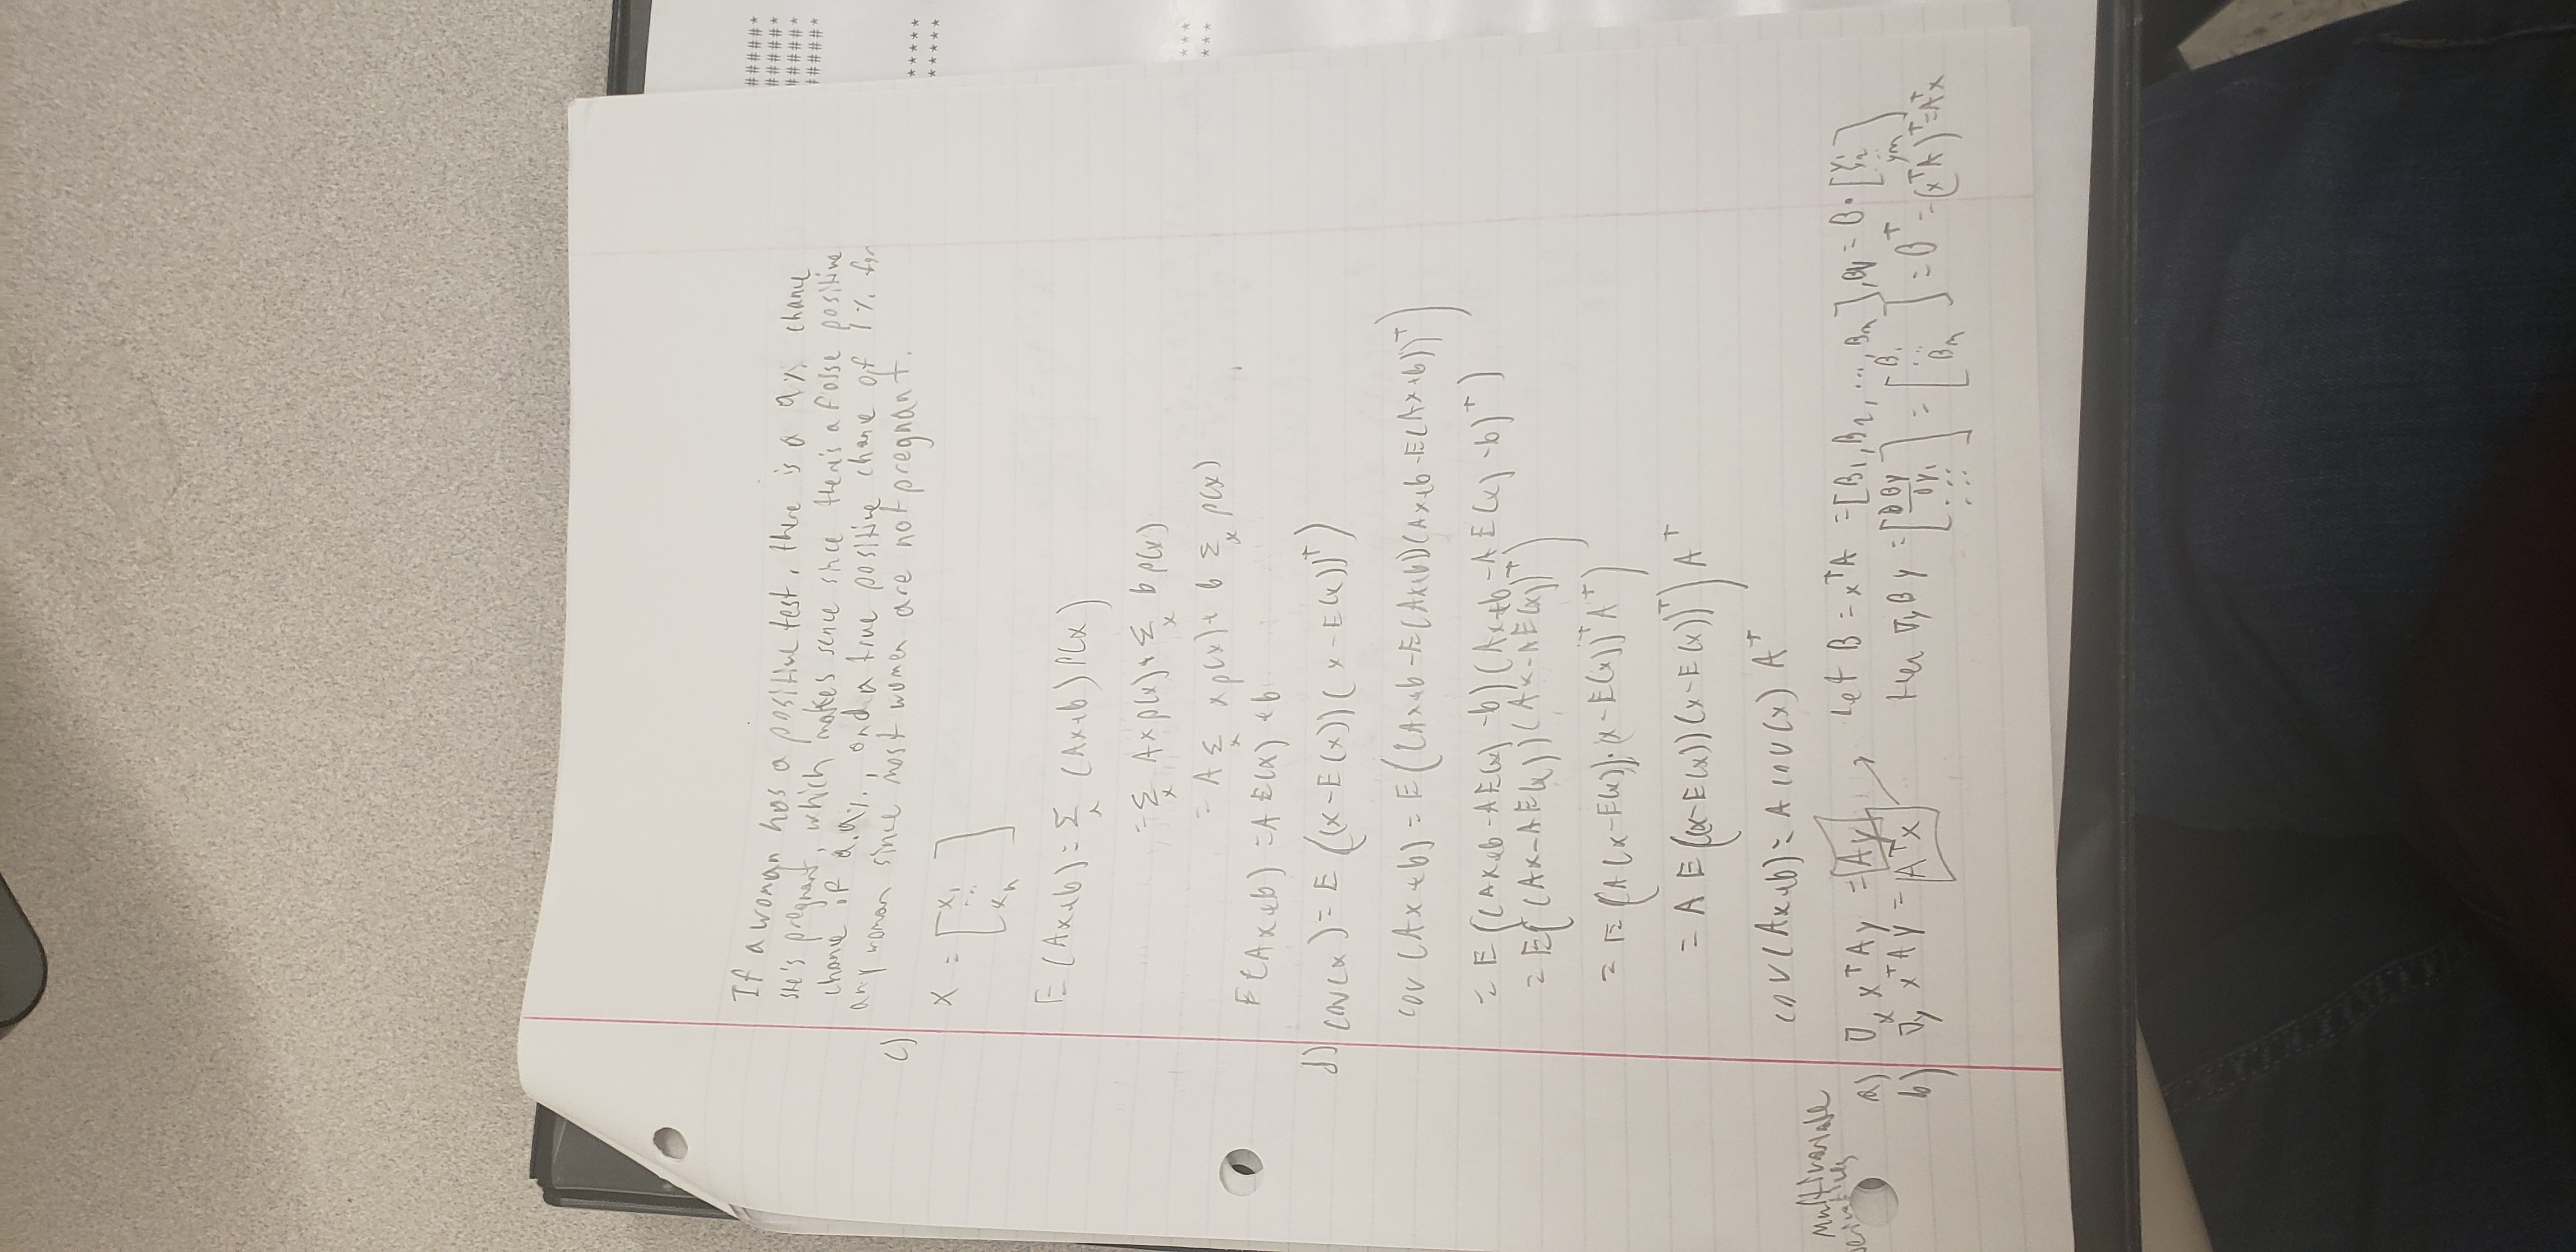 If a woman has a positive test, there is a 9% chance
she's pregnant, which makes sence since there's a false positive
chance of 9.9%, and a true positive chance of 1% for
any woman since most women are not pregnant.
c)
x = [x₁ ... xₙ]
E(Ax+b) = Σₓ (Ax+b) P(x)
= Σₓ Ax p(x) + Σₓ b p(x)
= A Σₓ x p(x) + b Σₓ p(x)
E(Ax+b) = A E(x) + b
d) cov(x) = E((x-E(x))(x-E(x))ᵀ)
cov(Ax+b) = E((Ax+b-E(Ax+b))(Ax+b-E(Ax+b))ᵀ)
= E((Ax+b-AE(x)-b)(Ax+b-AE(x)-b)ᵀ)
= E((Ax-AE(x))(Ax-AE(x))ᵀ)
= E(A(x-E(x))·(x-E(x))ᵀAᵀ)
= A E((x-E(x))(x-E(x))ᵀ) Aᵀ
cov(Ax+b) = A cov(x) Aᵀ
Multivariate
Derivatives
a) ∇ₓ xᵀAy = Ay
b) ∇y xᵀAy = Aᵀx
Let B = xᵀA = [B₁, B₂, ..., Bm], By = B·[y₁ y₂ ... ym]
then ∇y By = [∂By/∂y₁ ...] = [B₁ ... Bm] = Bᵀ = (xᵀA)ᵀ = Aᵀx
#####*
#####*
#####*
#####*
*****
*****
***
***